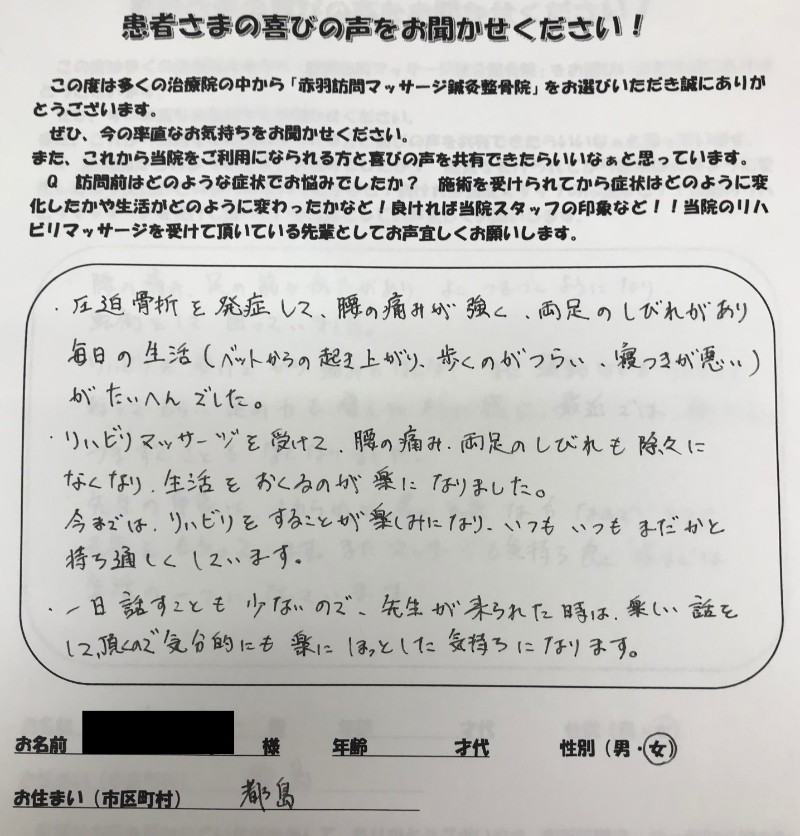 患者さまの喜びの声をお聞かせください！
この度は多くの治療院の中から「赤羽訪問マッサージ鍼灸整骨院」をお選びいただき誠にありが
とうございます。
ぜひ、今の率直なお気持ちをお聞かせください。
また、これから当院をご利用になられる方と喜びの声を共有できたらいいなぁと思っています。
Ｑ　訪問前はどのような症状でお悩みでしたか？　施術を受けられてから症状はどのように変
化したかや生活がどのように変わったかなど！良ければ当院スタッフの印象など！！当院のリハ
ビリマッサージを受けて頂いている先輩としてお声宜しくお願いします。
・圧迫骨折を発症して、腰の痛みが強く、両足のしびれがあり
毎日の生活（ベットからの起き上がり、歩くのがつらい、寝つきが悪い）
がたいへんでした。
・リハビリマッサージを受けて、腰の痛み、両足のしびれも除々に
なくなり、生活をおくるのが楽になりました。
今までは、リハビリをすることが楽しみになり、いつもいつもまだかと
待ち通しくしています。
・一日話すことも少ないので、先生が来られた時は、楽しい話を
して頂くので気分的にも楽にほっとした気持ちになります。
お名前　様　年齢　才代　性別（男・女）
お住まい（市区町村）　都島